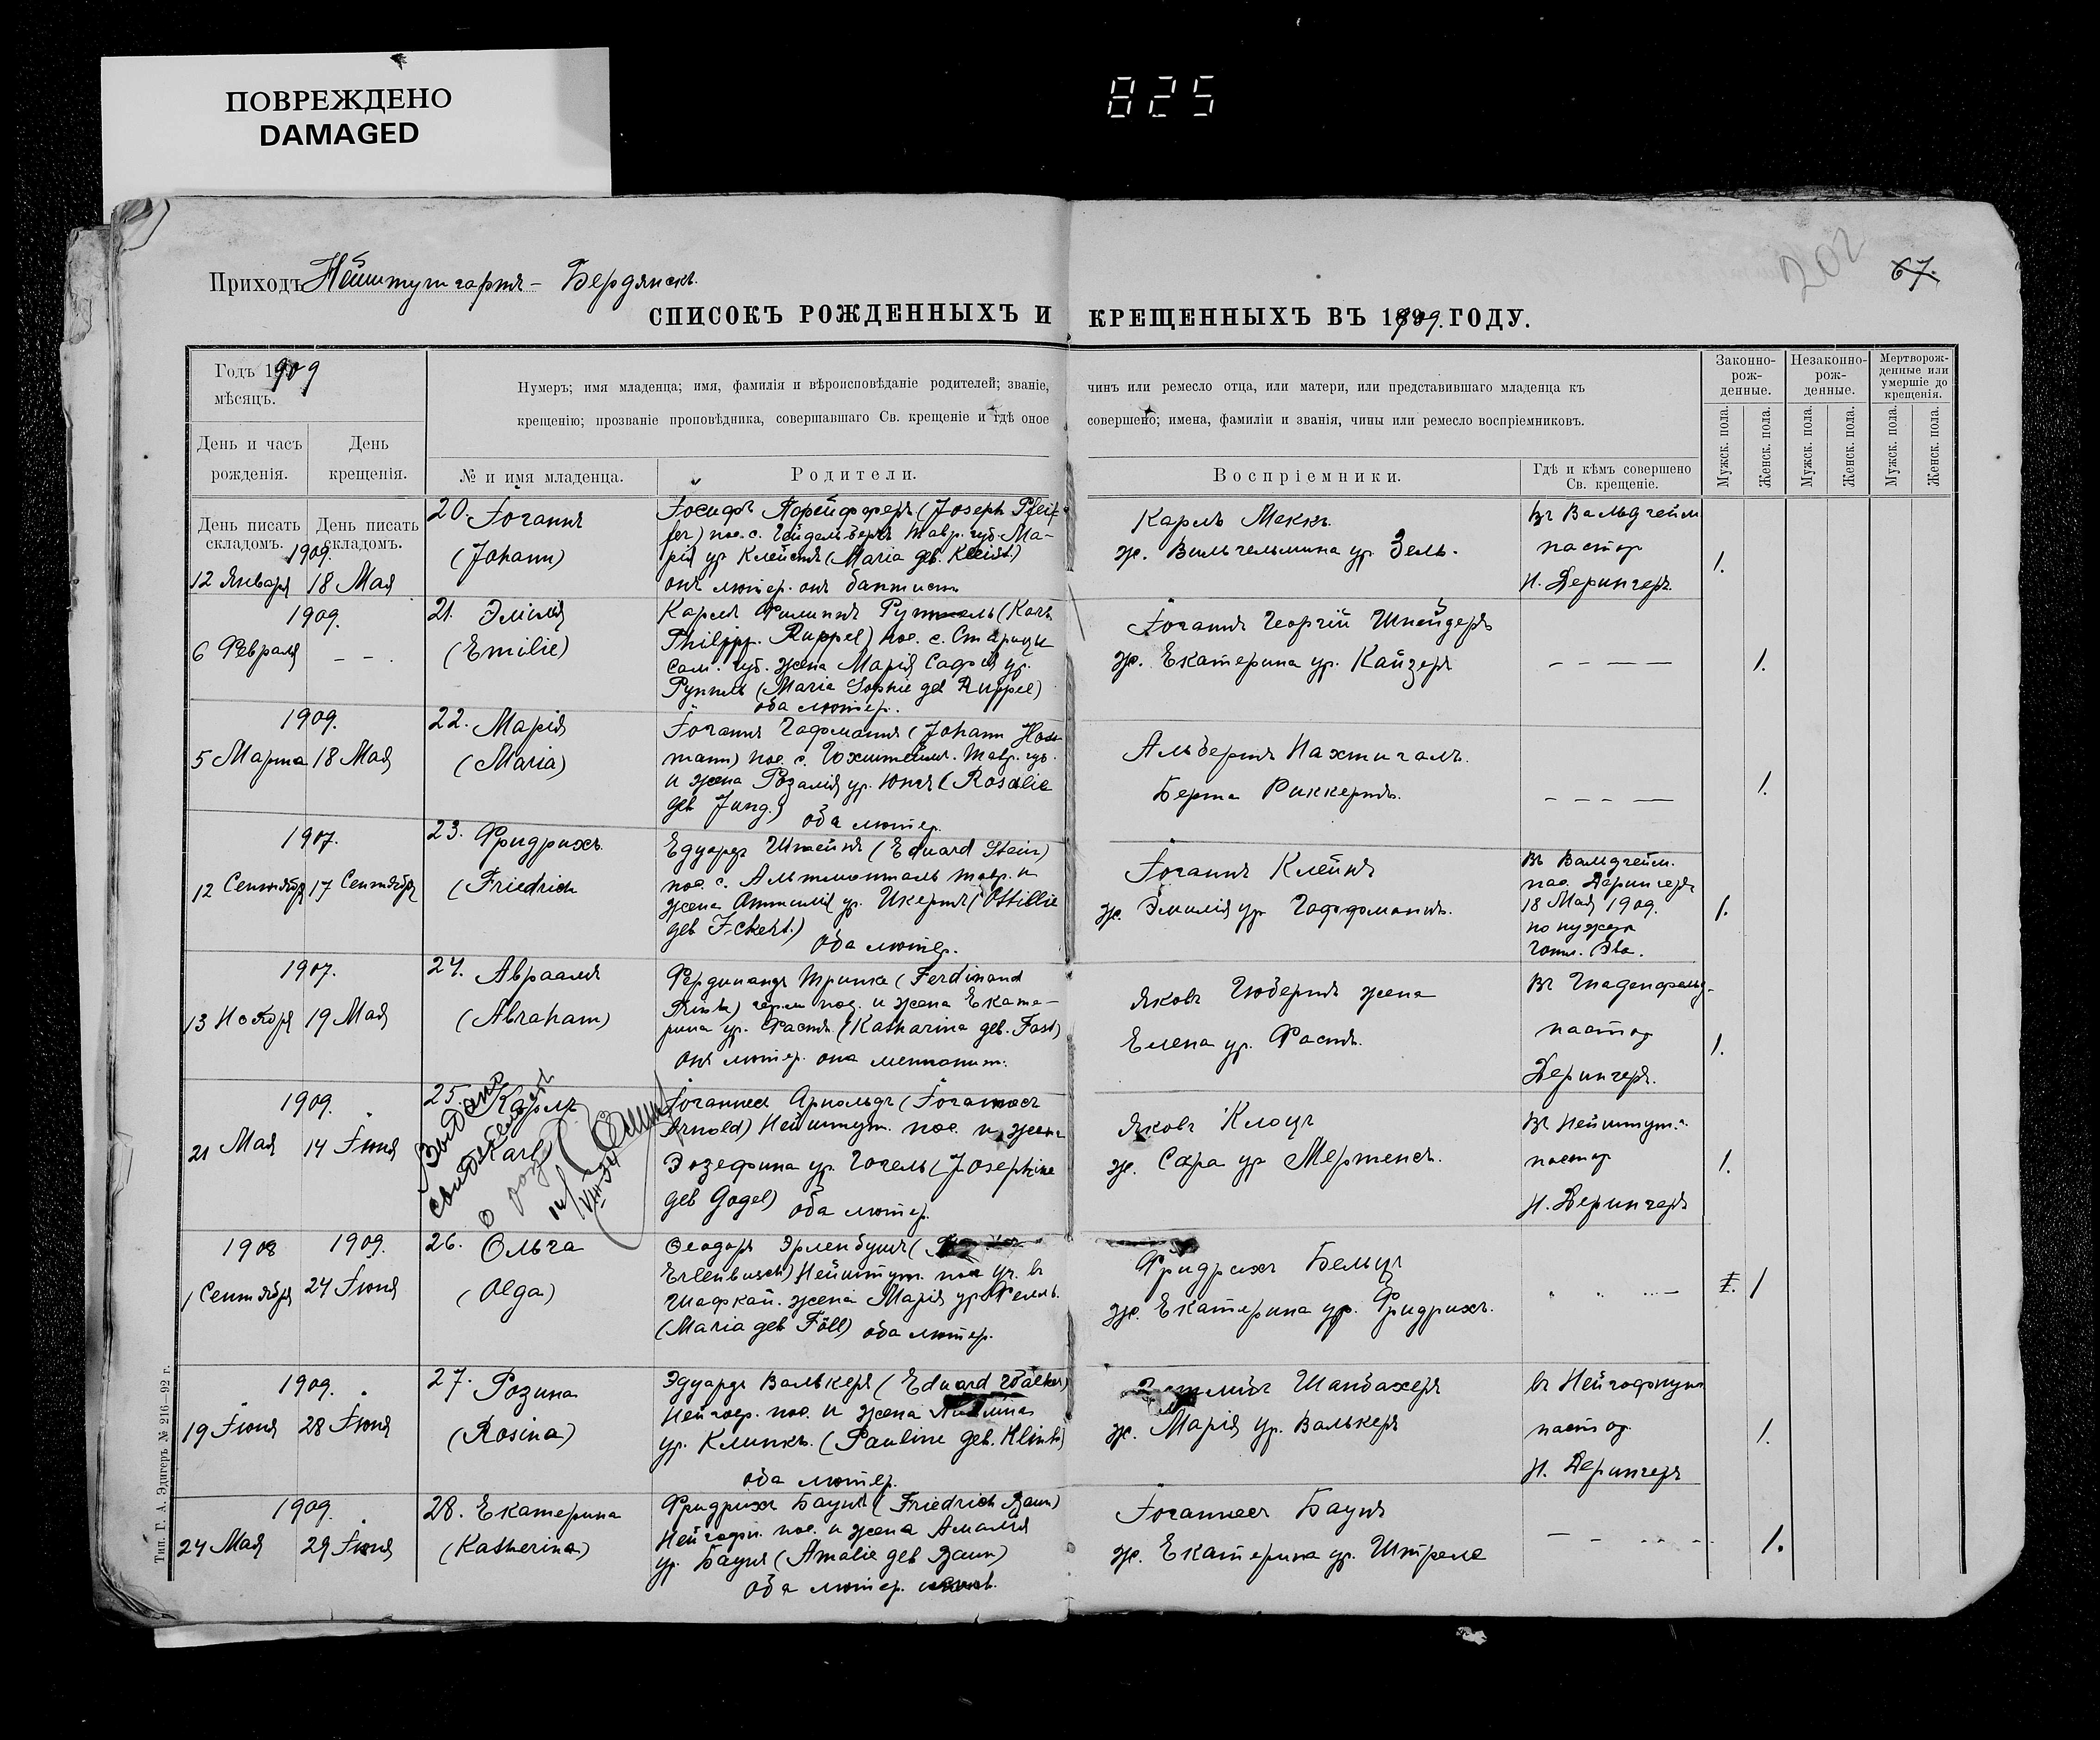 ПОВРЕЖДЕНО
DAMAGED
825
202
67.
Приходъ Нейштутгартъ - Бердянскъ.
СПИСОКЪ РОЖДЕННЫХЪ И КРЕЩЕННЫХЪ ВЪ 1909. ГОДУ.
Годъ 1909
мѣсяцъ.
День и часъ рожденія.
День крещенія.
Нумеръ; имя младенца; имя, фамилія и вѣроисповѣданіе родителей; званіе, чинъ или ремесло отца, или матери, или представившаго младенца къ
крещенію; прозваніе проповѣдника, совершавшаго Св. крещеніе и гдѣ оное совершено; имена, фамиліи и званія, чины или ремесло воспріемниковъ.
№ и имя младенца.
Родители.
Воспріемники.
Гдѣ и кѣмъ совершено Св. крещеніе.
Законно-рож-денные.
Незаконно-рож-денные.
Мертворож-денные или умершіе до крещенія.
Мужск. пола.
Женск. пола.
Мужск. пола.
Женск. пола.
Мужск. пола.
Женск. пола.
День писать складомъ.
День писать складомъ.
1909.
12 Января 18 Мая
20. Іоганнъ
(Johann)
Іосифъ Пфейфферъ (Joseph Pfeif-
fer) пос. с. Гейдельбергъ Тавр. губ. Ма-
рія ур. Клейстъ (Maria geb. Kleist)
онъ лютер. она баптист.
Карлъ Меккъ
ж. Вильгельмина ур. Зель.
Въ Вальдгейм
пастор
И. Дерингеръ.
1.
1909.
6 Февраля - - .
21. Эмилія
(Emilie)
Карлъ Филиппъ Руппель (Karl
Philipp. Ruppel) пос. с. Старицы
Сам. губ. жена Марія Софія ур.
Руппель (Maria Sophie geb Ruppel)
оба лютер.
Іоганнъ Георгій Шнейдеръ
ж. Екатерина ур. Кайзеръ
- - — —
1.
1909.
5 Марта 18 Мая
22. Марія
(Maria)
Іоганнъ Гофманнъ (Johann Hoff-
mann) пос. с. Гохштейтъ. Тавр. губ.
и жена Розалія ур. Юнгъ (Rosalie
geb Jung.) оба лютер.
Альбертъ Нахтигалъ.
Берта Риккертъ.
- - - —
1.
1907.
12 Сентября 17 Сентября
23. Фридрихъ
(Friedrich
Едуардъ Штейнъ (Eduard Stein)
пос. с. Альтмонталь тавр. и
жена Оттилія ур. Икертъ (Ottillie
geb Ickert.) оба лютер.
Іоганнъ Клейнъ
ж. Эмилія ур Гоффманнъ.
Въ Валдгейм.
пас. Дерингеръ
18 Мая 1909.
по нужде
1.
1907.
13 Ноября 19 Мая
24. Авраамъ
(Abraham)
Фердинандъ Тринке (Ferdinand
пос. и жена Екате-
рина ур. Фастъ. (Katharina geb. Fast)
онъ лютер. она меннонит.
Яковъ Гюбертъ жена
Елена ур. Фастъ.
Въ Гнаденфельд.
пастор
Дерингеръ.
1.
1909.
21 Мая 14 Іюня
25. Карлъ
Karl
Выдано
свидетельство
о рожд
14/VIII-34
Іоганнес Арнольдъ (Johannes
Arnold) Нейштут. пос. и жена
Эозефина ур. Гогель (Josephine
geb Gogel) оба лютер.
Яковъ Клоцъ
ж. Сара ур Мертенсъ.
Въ Нейштут.
пастор
И. Дерингеръ
1.
1908 1909.
1 Сентября 24 Іюня
26. Ольга
(Olga)
Феодоръ Эрленбушъ (
Erlenbusch) Нейштут. пос ур. в
жена Марія ур. Фелль.
(Maria geb Föll) оба лютер.
Фридрихъ Бельцъ
ж. Екатерина ур. Фридрихъ.
1
1909.
19 Іюня 28 Іюня
27. Розина
(Rosina)
Эдуардъ Валькеръ (Eduard Walker)
Нейгоф. пос. и жена Паулина
ур. Клинкъ. (Pauline geb. Klink)
оба лютер.
Готлибъ Шанбахеръ
ж. Марія ур. Валькеръ
въ Нейгофнун
пастор
И. Дерингеръ
1.
1909.
24 Мая 29 Іюня
28. Екатерина
(Katherina)
Фридрихъ Баунъ (Friedrich Baun)
Нейгофн. пос. и жена Амалія
ур. Баунъ (Amalie geb Baun)
оба лютер.
Іоганнесъ Баунъ
ж. Екатерина ур. Штреле
— - - -
1.
Тип. Г. А. Эдигеръ № 216—92 г.